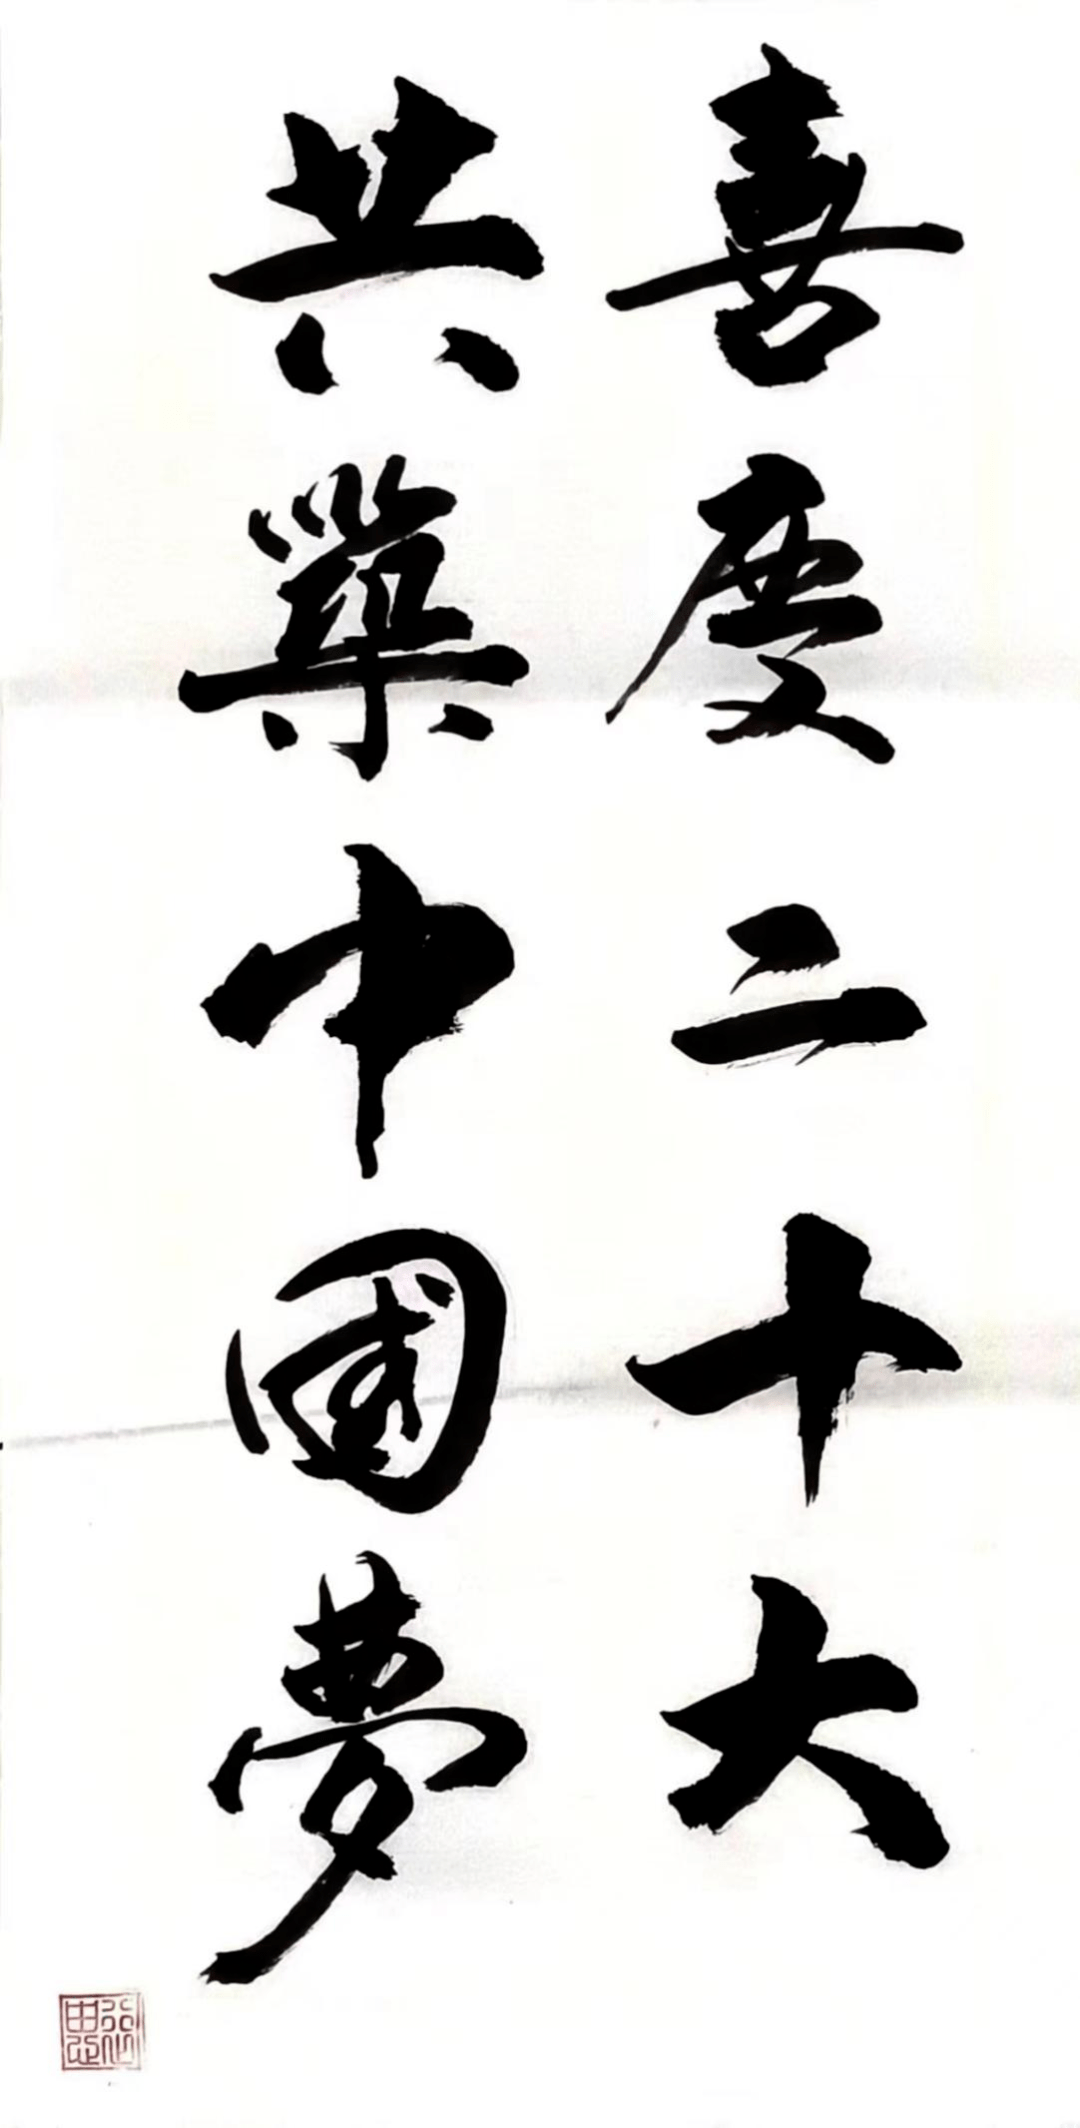 喜慶二十大
共築中國夢